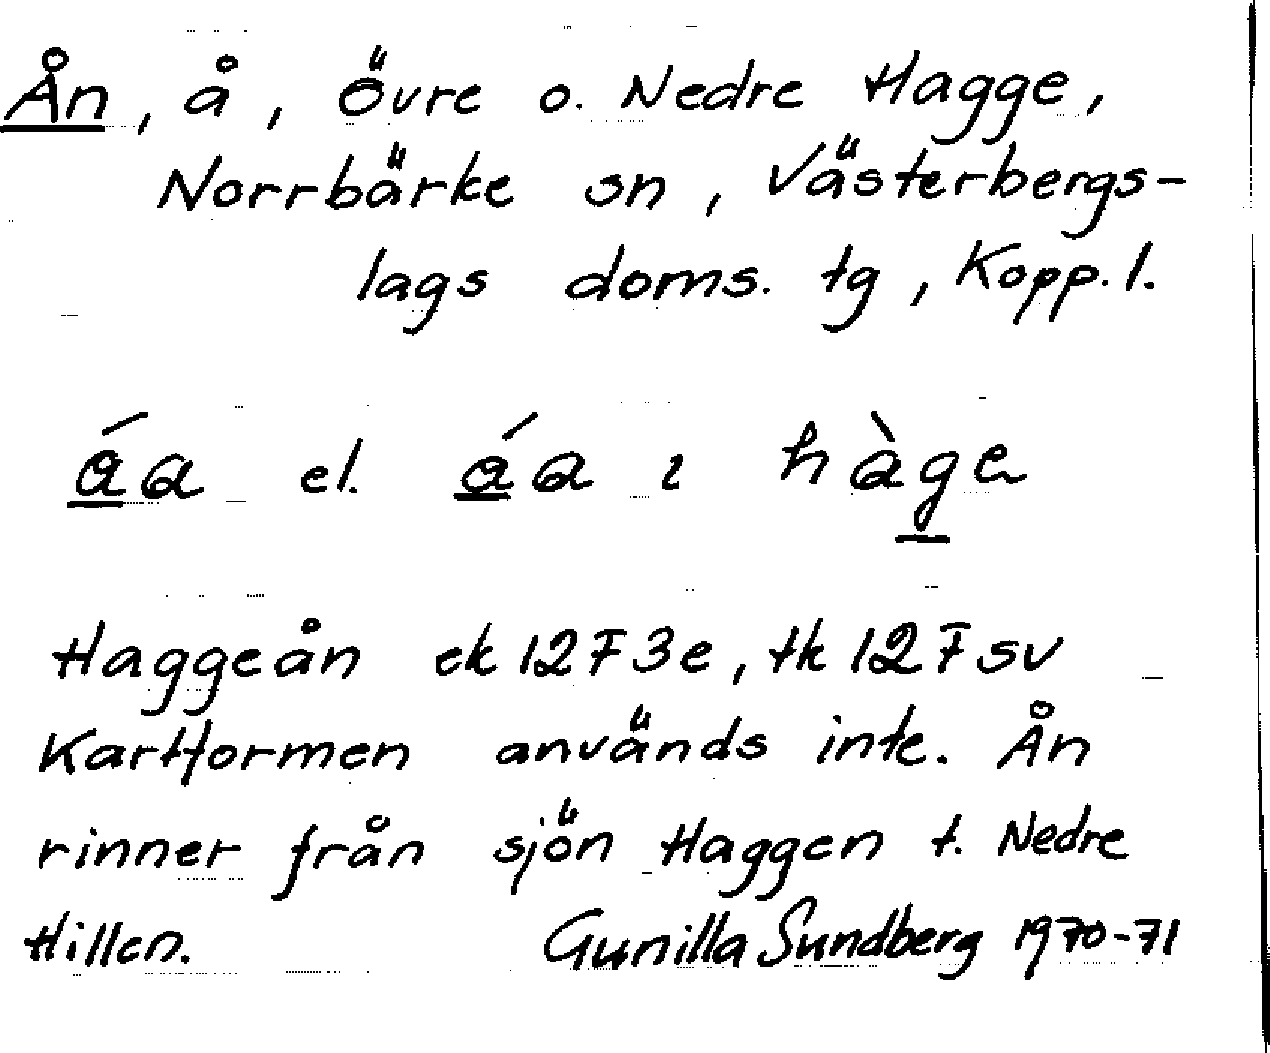 Ån, å, Övre o. Nedre Hagge,
Norrbärke sn, Västerbergs-
lags doms. tg, Kopp. l.
áa el. áa ı hàge
Haggeån ek 12F3e, tk 12F sv
Kartformen används inte. Ån
rinner från sjön Haggen t. Nedre
Hillen. Gunilla Sundberg 1970-71